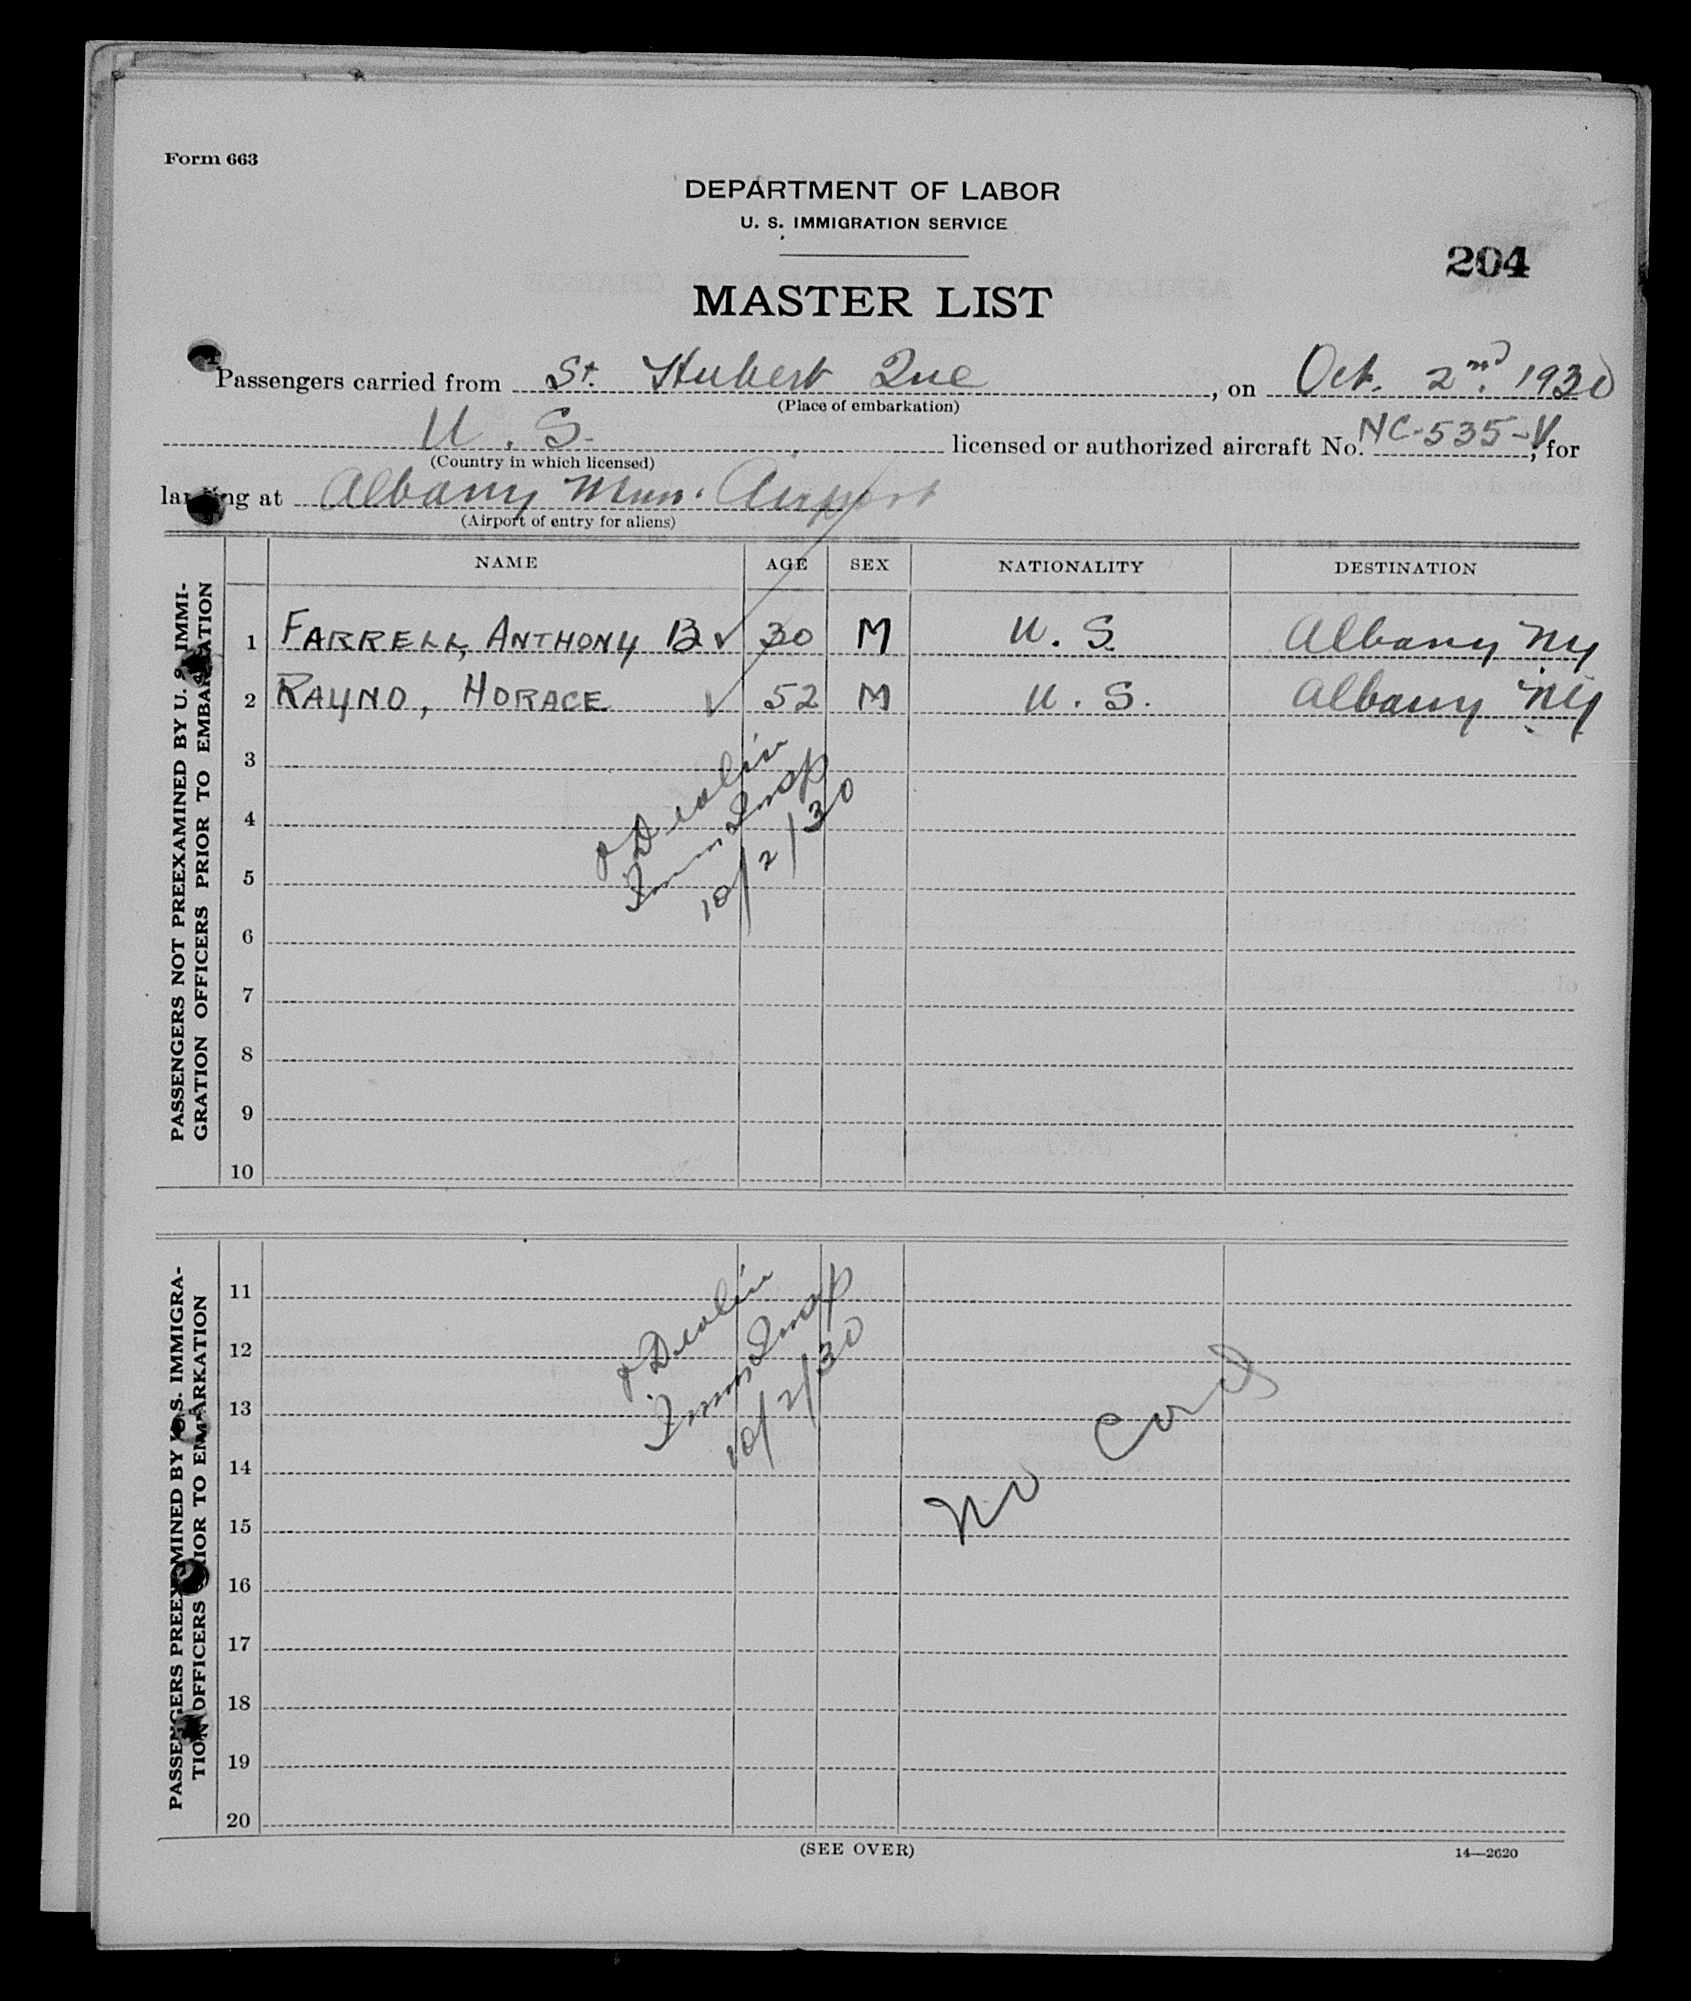 Form 663
DEPARTMENT OF LABOR
U. S. IMMIGRATION SERVICE
204
MASTER LIST
Passengers carried from St. Hubert Que, on Oct. 2nd. 1930
(Place of embarkation)
U. S. licensed or authorized aircraft No. NC-535-V, for
(Country in which licensed)
landing at Albany Mun. Airport
(Airport of entry for aliens)
NAME AGE SEX NATIONALITY DESTINATION
PASSENGERS NOT PREEXAMINED BY U. S. IMMI-
GRATION OFFICERS PRIOR TO EMBARKATION
1 FARRELL, ANTHONY B ✓ 30 M U. S. Albany NY
2 RAYNO, HORACE ✓ 52 M U. S. Albany NY
3
4
5
6
7
8
9
10
Devlin
Imm Insp
10/2/30
PASSENGERS PREEXAMINED BY U. S. IMMIGRA-
TION OFFICERS PRIOR TO EMBARKATION
11
12
13
14
15
16
17
18
19
20
Devlin
Imm Insp
10/2/30
No Card
(SEE OVER)
14—2620